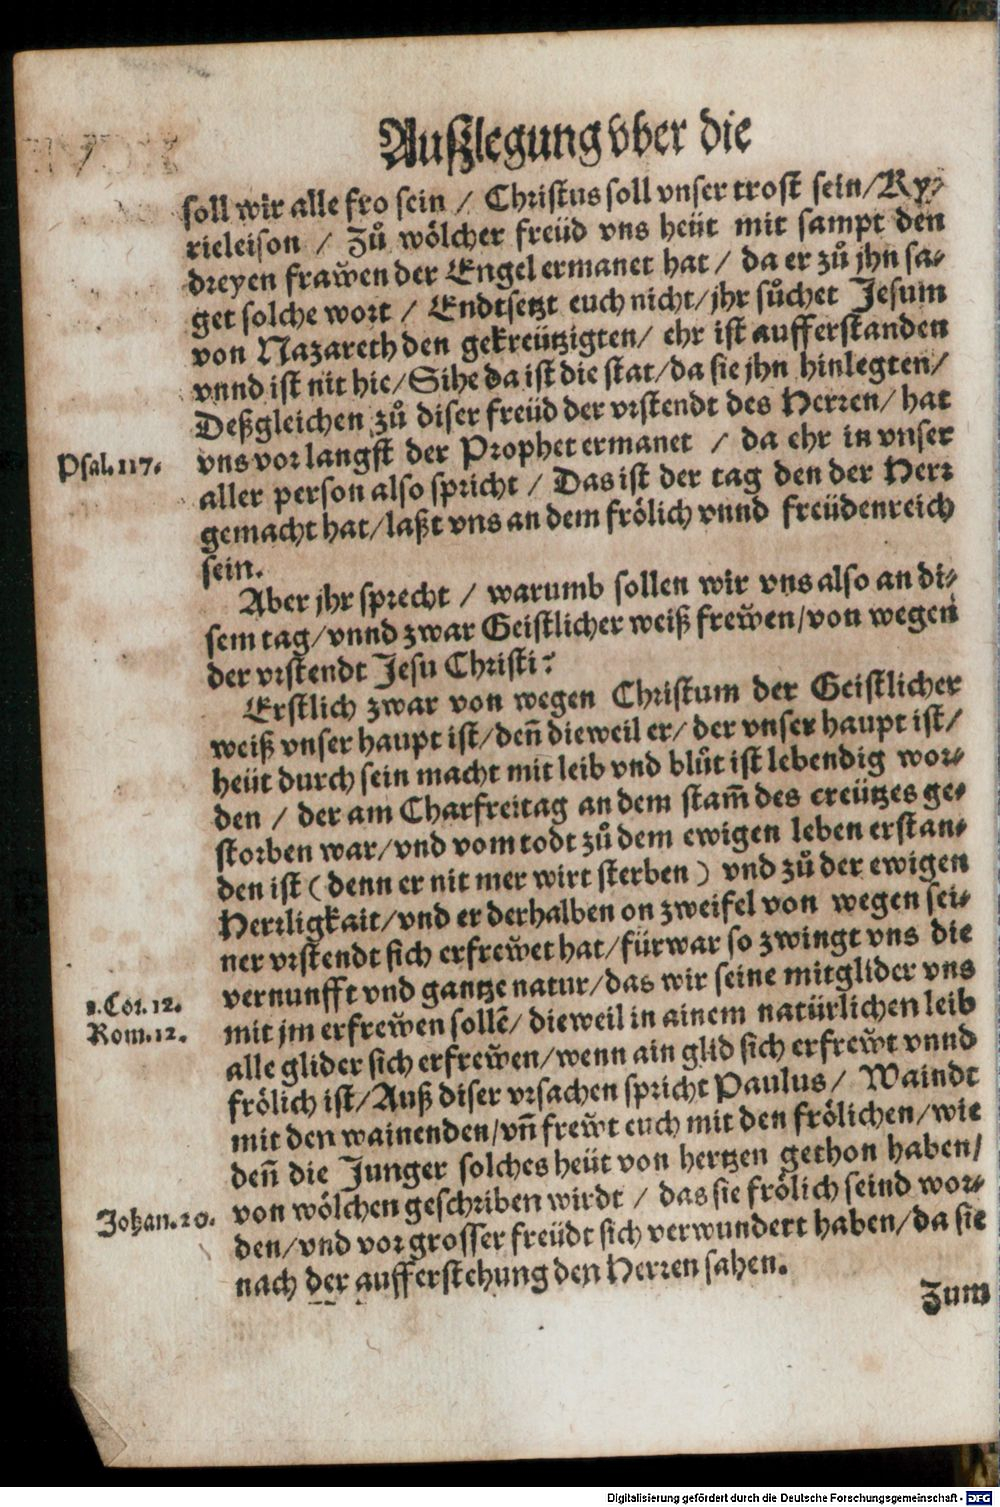 Außlegung vber die
soll wir alle fro sein / Christus soll vnser trost sein/Ky⸗
rieleison / Zů wölcher freüd vns heüt mit sampt den
dreyen fraw̃en der Engel ermanet hat / da er zů jhn sa⸗
get solche wort / Endtsetzt euch nicht/jhr sůchet Jesum
von Nazareth den gekreützigten/ ehr ist aufferstanden
vnnd ist nit hie/Sihe da ist die stat/da sie jhn hinlegten/
Deßgleichen zů diser freüd der vrstendt des Herren/ hat
Psal.117. vns vor langst der Prophet ermanet / da ehr in vnser
aller person also spricht / Das ist der tag den der Herr
gemacht hat/laßt vns an dem frölich vnnd freüdenreich
sein.
Aber jhr sprecht / warumb sollen wir vns also an di⸗
sem tag/vnnd zwar Geistlicher weiß frew̃en/von wegen
der vrstendt Jesu Christi?
Erstlich zwar von wegen Christum der Geistlicher
weiß vnser haupt ist/deñ dieweil er/ der vnser haupt ist/
heüt durch sein macht mit leib vnd blůt ist lebendig wor⸗
den / der am Charfreitag an dem stam̃ des creützes ge⸗
storben war/vnd vom todt zů dem ewigen leben erstan⸗
den ist (denn er nit mer wirt sterben) vnd zů der ewigen
Herrligkait/vnd er derhalben on zweifel von wegen sei⸗
ner vrstendt sich erfrew̃et hat/fürwar so zwingt vns die
vernunfft vnd gantze natur/das wir seine mitglider vns
1.Cor.12. mit jm erfrew̃en sollẽ/ dieweil in ainem natürlichen leib
Rom.12. alle glider sich erfrew̃en/wenn ain glid sich erfrew̃t vnnd
frölich ist/Auß diser vrsachen spricht Paulus/ Waindt
mit den wainenden/vñ frew̃t euch mit den frölichen/wie
deñ die Junger solches heüt von hertzen gethon haben/
Johan.20. von wölchen geschriben wirdt / das sie frölich seind wor⸗
den/vnd vor grosser freüdt sich verwundert haben/da sie
nach der aufferstehung den Herren sahen.
Zum
Digitalisierung gefördert durch die Deutsche Forschungsgemeinschaft - DFG